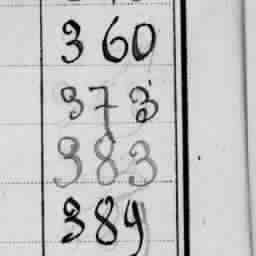 360
373
383
384